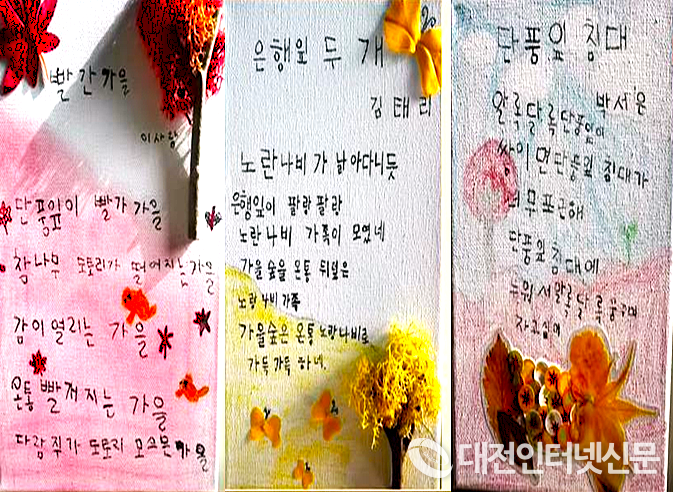 빨간가을
이사랑
단풍잎이 빨가 가을
참나무 도토리가 떨어지는가을
감이열리는 가을
온통 빨개지는 가을
다람쥐가 도토리 모으는 가을
은행잎 두 개
김태리
노란나비가 낡아다니듯
은행잎이 팔랑팔랑
노란나비 가족이 모였네
가을숲을 온통 뒤덮은
노란나비가족
가을숲은 온통 노란나비로
가득가득 하네.
단풍잎 침대
박서은
알록달록단풍잎이
쌓이면단풍잎 침대가
너무포근해
단풍잎침대에
누워서알록달록꿈꾸며
자고싶어
대전인터넷신문